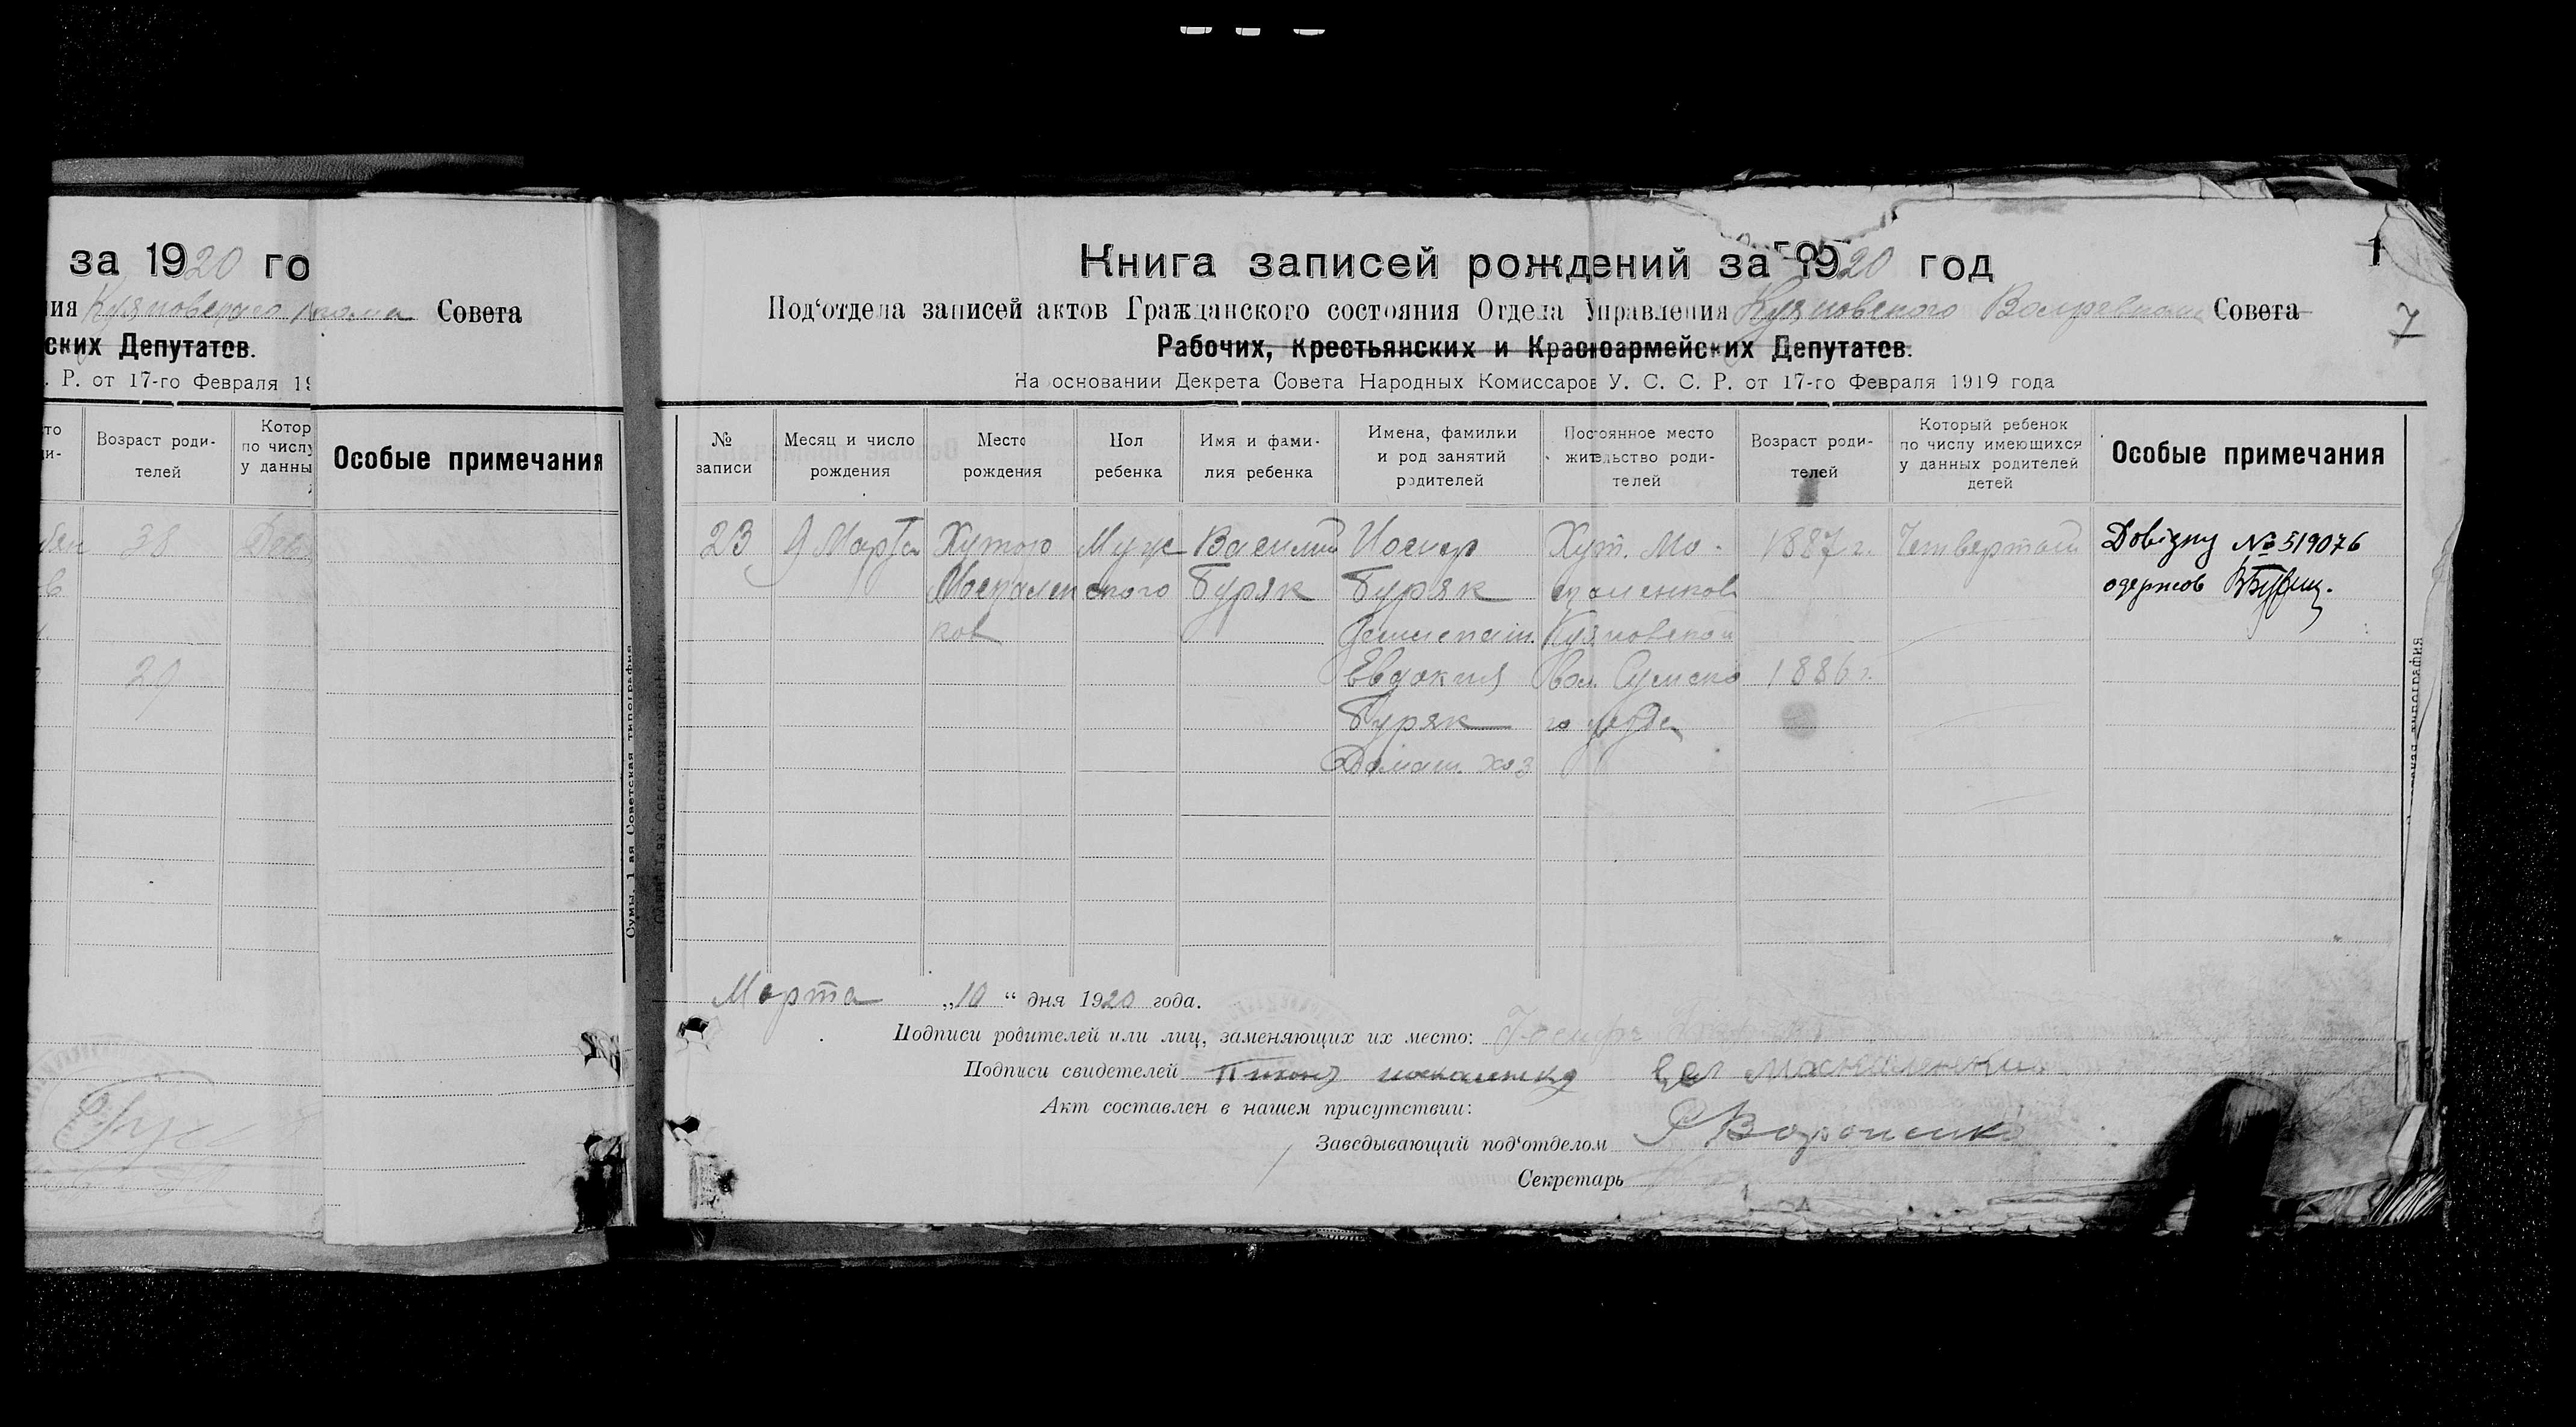 за 1920 го
ия Совета
ских Депутатов.
. Р. от 17-го Февраля 19
Возраст роди-
телей
Котор
по числу
у данны
Особые примечания
38
29
Сумы, 1-ая Советская типография
1
7
Книга записей рождений за 1920 год
Под‘отдела записей актов Гражданского состояния Отдела Управления Куяновского Волревкома Совета
Рабочих, Крестьянских и Красноармейских Депутатов.
На основании Декрета Совета Народных Комиссаров У. С. С. Р. от 17-го Февраля 1919 года
№
записи
Месяц и число
рождения
Место
рождения
Пол
ребенка
Имя и фами-
лия ребенка
Имена, фамилии
и род занятий
родителей
Постоянное место
жительство роди-
телей
Возраст роди-
телей
Который ребенок
по числу имеющихся
у данных родителей
детей
Особые примечания
23
9 Марта
Хутого
Москален
ков
Муж
ского
Василий
Буряк
Иосиф
Буряк
Евдокия
Буряк
Домаш. хоз
Хут. Мо-
скаленков
Куяновской
вол. Сумско
го уезда
1887 г.
1886 г.
Четвертый
Довідку № 519076
одержав
Марта „10“ дня 1920 года.
Подписи родителей или лиц, заменяющих их место:
Подписи свидетелей
Акт составлен в нашем присутствии:
Заведывающий под‘отделом
Секретарь